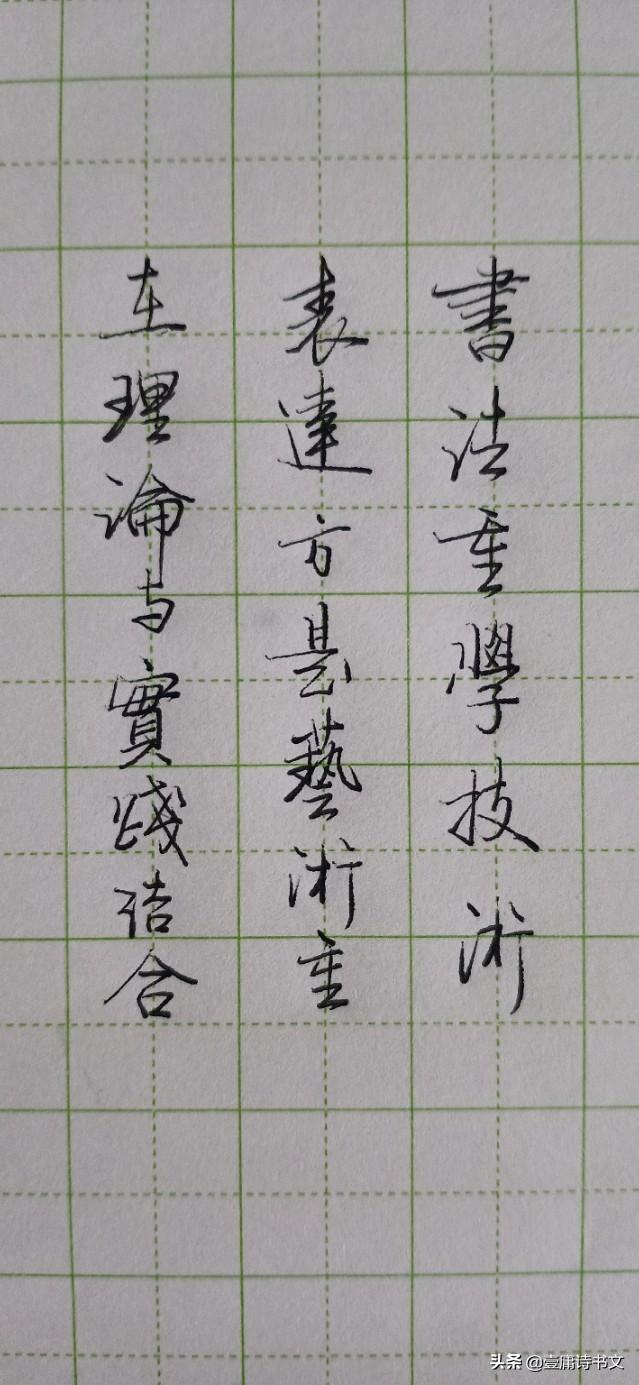 書法重學技術
表達方是藝術重
在理論与實踐结合
头条 @壹庸诗书文